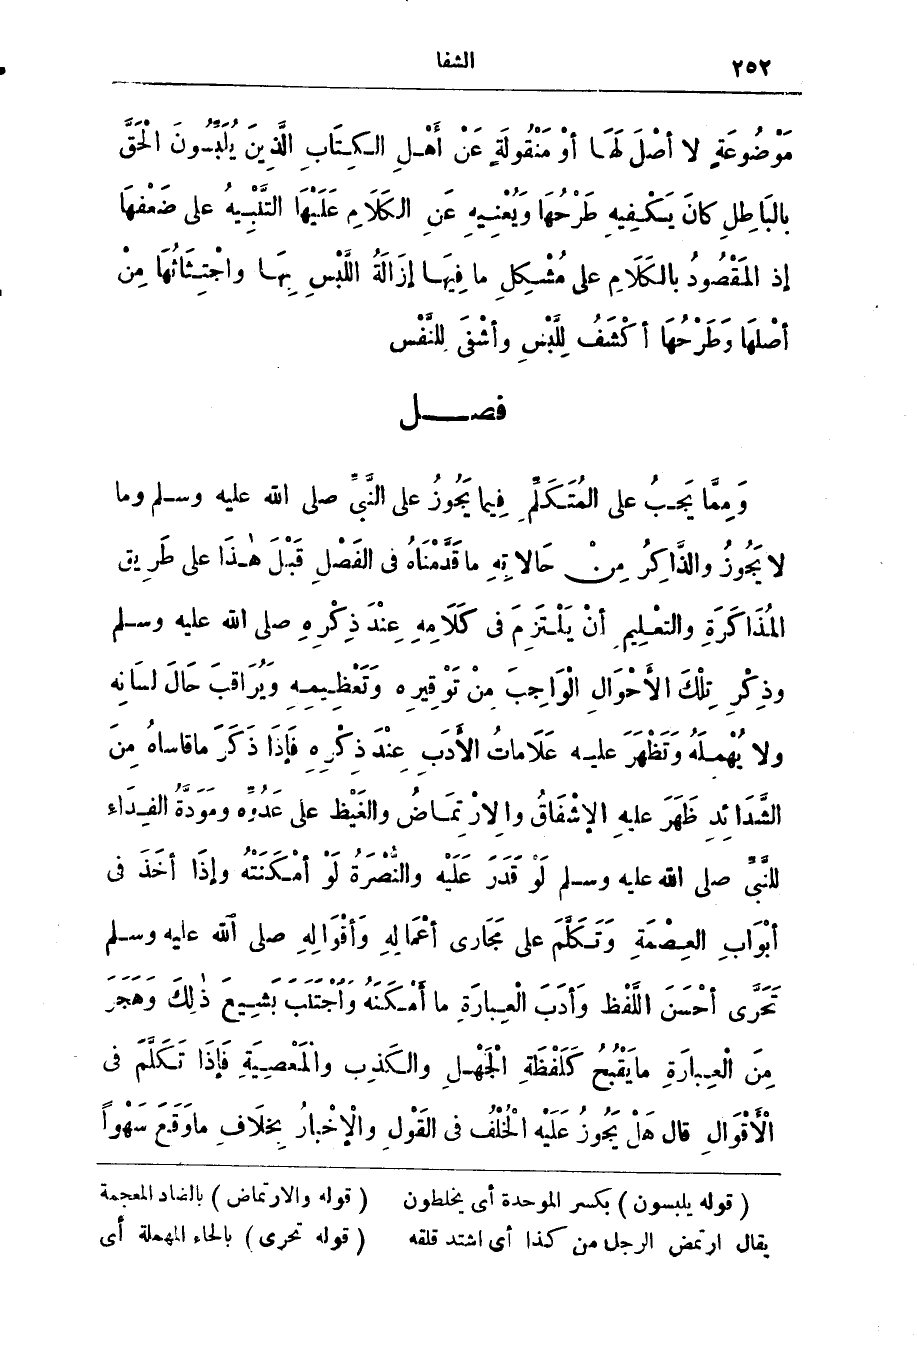 ٢٥٢
الشفا
مَوْضُوعَةٍ لا أصْلَ لَهَا أوْ مَنْقُولَةٍ عَنْ أَهْلِ الكِتَابِ الَّذِينَ يُلَبِّسُونَ الْحَقَّ
بالبَاطِلِ كانَ يَكْفِيهِ طَرْحُهَا وَيُغْنِيهِ عَنِ الكَلَامِ عَلَيْهَا التَّنْبِيهُ على ضَعْفِهَا
إذ المَقْصُودُ بالكَلَامِ على مُشْكِلِ ما فِيهَا إزَالَةُ اللَّبْسِ بِهَا واجْتِثَاثُهَا مِنْ
أصْلِهَا وَطَرْحُهَا أكْشَفُ لِلَّبْسِ وأشْفَى لِلنَّفْسِ
فصل
وَمِمَّا يَجِبُ على المُتَكَلِّمِ فِيما يَجُوزُ على النَّبِيِّ صلى الله عليه وسلم وما
لا يَجُوزُ والذَّاكِرُ مِنْ حَالاتِهِ ما قَدَّمْنَاهُ فى الفَصْلِ قَبْلَ هٰذَا على طَرِيقِ
المُذَاكَرَةِ والتعْلِيمِ أنْ يَلْتَزِمَ فى كَلَامِهِ عِنْدَ ذِكْرِهِ صلى الله عليه وسلم
وذِكْرِ تِلْكَ الأَحْوَالِ الْوَاجِبَ مِنْ تَوْقِيرِهِ وَتَعْظِيمِهِ وَيُرَاقِبَ حَالَ لسَانِهِ
ولا يُهْمِلَهُ وَتَظْهَرَ عليه عَلَامَاتُ الأَدَبِ عِنْدَ ذِكْرِهِ فَإذَا ذَكَرَ ماقاساهُ مِنَ
الشَّدَائِدِ ظَهَرَ عليهِ الإشْفَاقُ والارْتِمَاضُ والغَيْظُ على عَدُوِّهِ ومَوَدَّةُ الفِدَاءِ
للنَّبِىِّ صلى الله عليه وسلم لَوْ قَدَرَ عَلَيْهِ والنُّصْرَةُ لَوْ أمْكَنَتْهُ وإذَا أخَذَ فى
أبْوَابِ العِصْمَةِ وَتَكَلَّمَ على مَجَارى أعْمَالِهِ وَأقْوَالِهِ صلى الله عليه وسلم
تَحَرَّى أحْسَنَ اللَّفْظِ وأدَبَ الْعِبارَةِ ما أمْكَنَهُ وَاجْتَنَبَ بَشِيعَ ذٰلِكَ وَهَجَرَ
مِنَ الْعِبارَةِ مايَقْبُحُ كَلَفْظَةِ الْجَهْلِ والكَذِبِ والْمَعْصِيَةِ فَإذَا تَكَلَّمَ فى
الْأَقْوَالِ قال هَلْ يَجُوزُ عَلَيْهِ الْخُلْفُ فى القَوْلِ والْإخْبارُ بِخِلَافِ ماوَقَعَ سَهْواً
( قوله يلبسون ) بكسر الموحدة أى يخلطون ( قوله والارتماض ) بالضاد المعجمة
يقال ارتمض الرجل من كذا أى اشتد قلقه ( قوله تحرى ) بالحاء المهملة أى